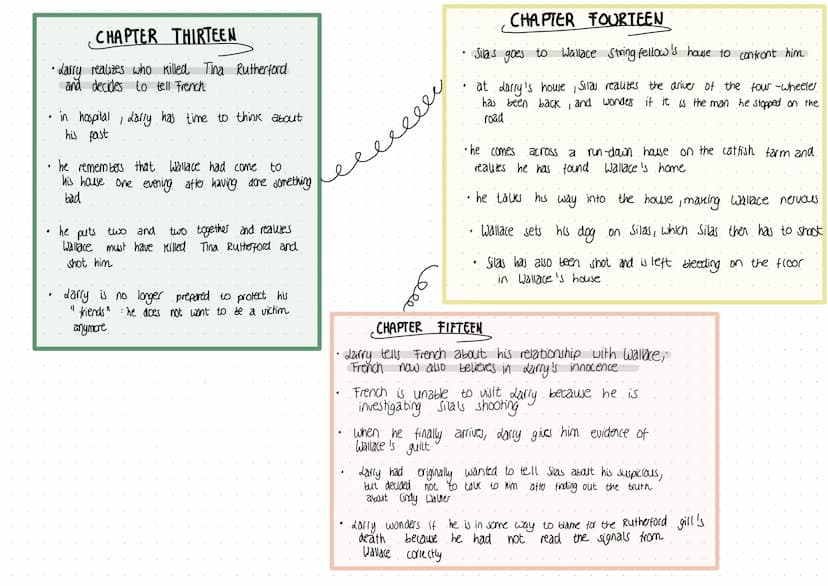 CHAPTER THIRTEEN
• Larry realizes who killed Tina Rutherford
and decides to tell French
• in hospital, Larry has time to think about
his past
• he remembers that Wallace had come to
his house one evening after having done something
bad
• he puts two and two together and realizes
Wallace must have killed Tina Rutherford and
shot him
• Larry is no longer prepared to protect his
"friends": he does not want to be a victim
anymore
CHAPTER FOURTEEN
• Silas goes to Wallace Stringfellow's house to confront him
• at Larry's house, Silas realizes the driver of the four-wheeler
has been back, and wonders if it is the man he stopped on the
road
• he comes across a run-down house on the catfish farm and
realizes he has found Wallace's home
• he talks his way into the house, making Wallace nervous
• Wallace sets his dog on Silas, which Silas then has to shoot
• Silas has also been shot and is left bleeding on the floor
in Wallace's house
CHAPTER FIFTEEN
• Larry tells French about his relationship with Wallace;
French now also believes in Larry's innocence
• French is unable to visit Larry because he is
investigating Silas's shooting
• when he finally arrives, Larry gives him evidence of
Wallace's guilt
• Larry had originally wanted to tell Silas about his suspicions,
but decided not to talk to him after finding out the truth
about Cindy Walker
• Larry wonders if he is in some way to blame for the Rutherford girl's
death because he had not read the signals from
Wallace correctly